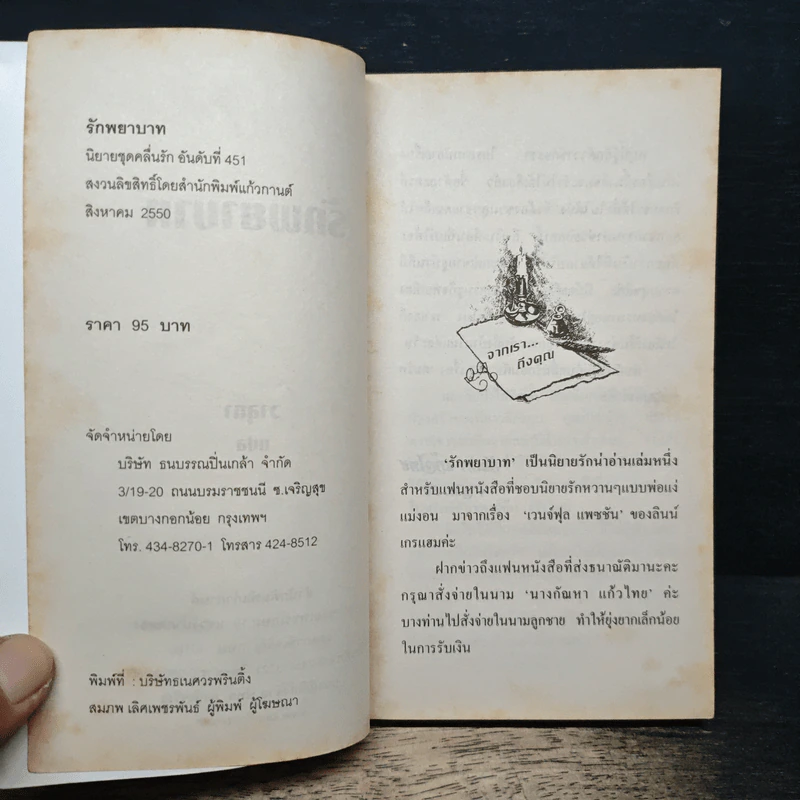 รักพยาบาท
นิยายชุดคลื่นรัก อันดับที่ 451
สงวนลิขสิทธิ์โดยสำนักพิมพ์แก้วกานต์
สิงหาคม 2550
ราคา 95 บาท
จัดจำหน่ายโดย
บริษัท ธนบรรณปิ่นเกล้า จำกัด
3/19-20 ถนนบรมราชชนนี ซ.เจริญสุข
เขตบางกอกน้อย กรุงเทพฯ
โทร. 434-8270-1 โทรสาร 424-8512
พิมพ์ที่ : บริษัทเนศวรพรินติ้ง
สมภพ เลิศเพชรพันธ์ ผู้พิมพ์ ผู้โฆษณา
จากเรา...
ถึงคุณ
'รักพยาบาท' เป็นนิยายรักน่าอ่านเล่มหนึ่ง
สำหรับแฟนหนังสือที่ชอบนิยายรักหวานๆแบบพ่อแง่
แม่งอน มาจากเรื่อง 'เวนจ์ฟูล แพชชัน' ของลินน์
เกรแฮมค่ะ
ฝากข่าวถึงแฟนหนังสือที่ส่งธนาณัติมานะคะ
กรุณาสั่งจ่ายในนาม 'นางกัณหา แก้วไทย' ค่ะ
บางท่านไปสั่งจ่ายในนามลูกชาย ทำให้ยุ่งยากเล็กน้อย
ในการรับเงิน